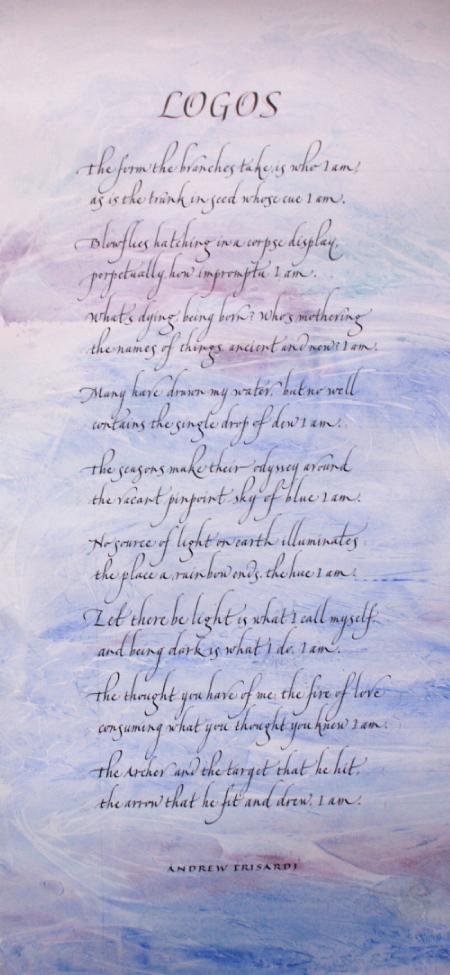 LOGOS
The form the branches take is who I am,
as is the trunk in seed whose cue I am.
Blowflies hatching in a corpse display,
perpetually, how impromptu I am.
What's dying, being born? Who's mothering
the names of things, ancient and new? I am.
Many have drawn my water, but no well
contains the single drop of dew I am.
The seasons make their odyssey around
the vacant pinpoint sky of blue I am.
No source of light on earth illuminates
the place a rainbow ends, the hue I am.
Let there be light is what I call myself,
and being dark is what I do, I am.
The thought you have of me, the fire of love
consuming what you thought you knew I am.
The Archer and the target that he hit,
the arrow that he fit and drew, I am.
ANDREW FRISARDI